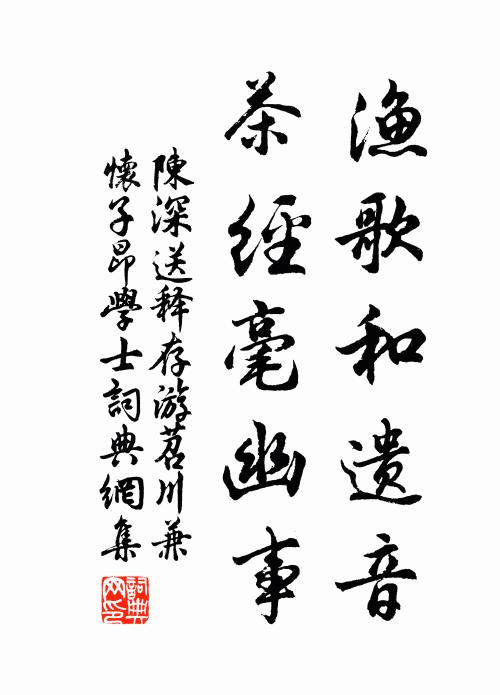 渔歌和遗音
茶經毫幽事
陳深送释存游苕川兼
懷子昂學士詞典網集